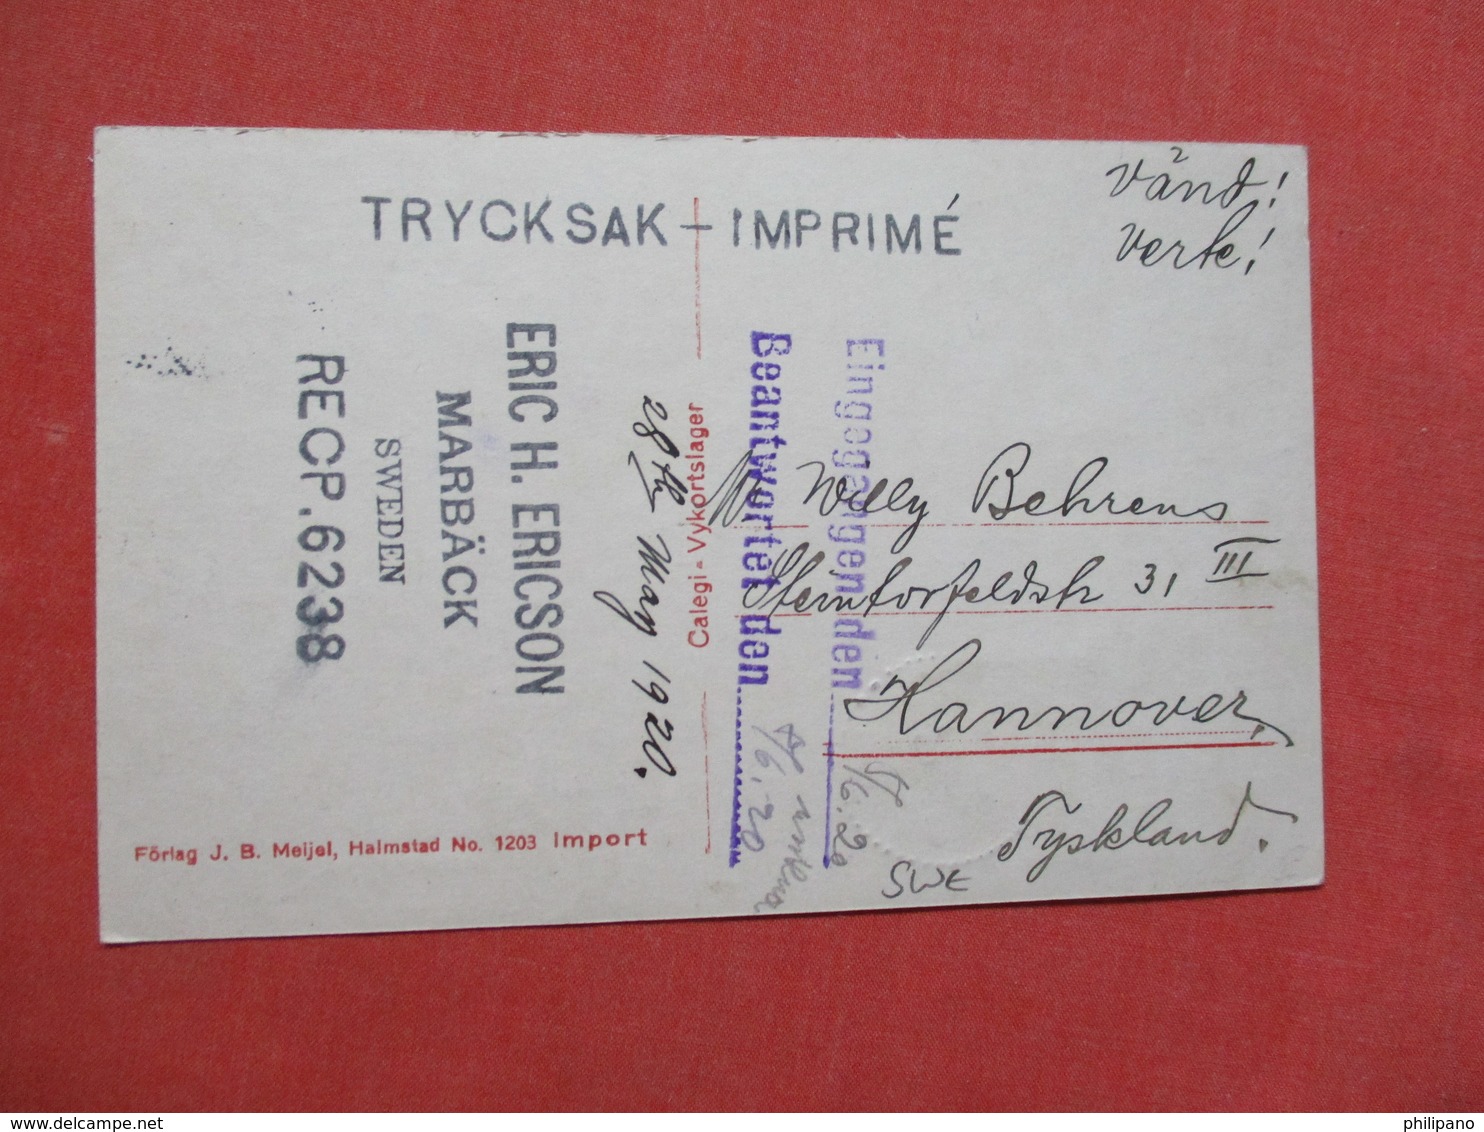 vänd!
verte!
TRYCKSAK - IMPRIMÉ
ERIC H. ERICSON
MARBÄCK
SWEDEN
RECP. 6238
28th May 1920.
Calegi - Vykortslager
Eingegangen den
1/6.20
Beantwortet den
1/6.20
Willy Behrens
Steintorfeldstr 31 III
Hannover,
Tyskland.
SWE
Förlag J. B. Meijel, Halmstad No. 1203 Import
delcampe.net
philipano